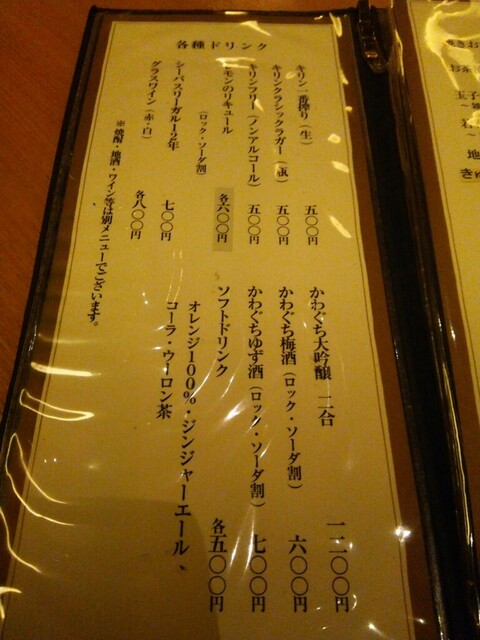 各種ドリンク
キリン一番搾り（生） 五〇〇円
キリンクラシックラガー（瓶） 五〇〇円
キリンフリー（ノンアルコール） 五〇〇円
レモンのリキュール 各六〇〇円
（ロック・ソーダ割）
シーバスリーガル12年 七〇〇円
グラスワイン（赤・白） 各八〇〇円
※焼酎・地酒・ワイン等は別メニューでございます。
かわぐち大吟醸 二合 一二〇〇円
かわぐち梅酒（ロック・ソーダ割） 六〇〇円
かわぐちゆず酒（ロック・ソーダ割） 七〇〇円
ソフトドリンク 各五〇〇円
オレンジ100％・ジンジャーエール、
コーラ・ウーロン茶
お茶
玉子
地